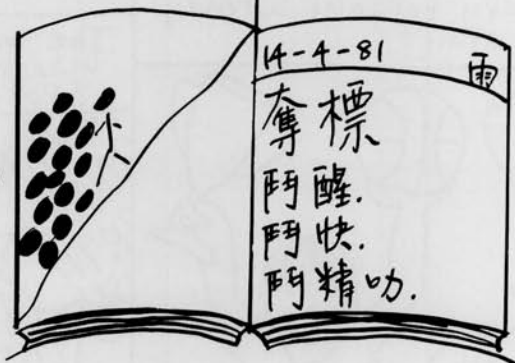 14-4-81 雨
奪標
鬥醒.
鬥快.
鬥精叻.